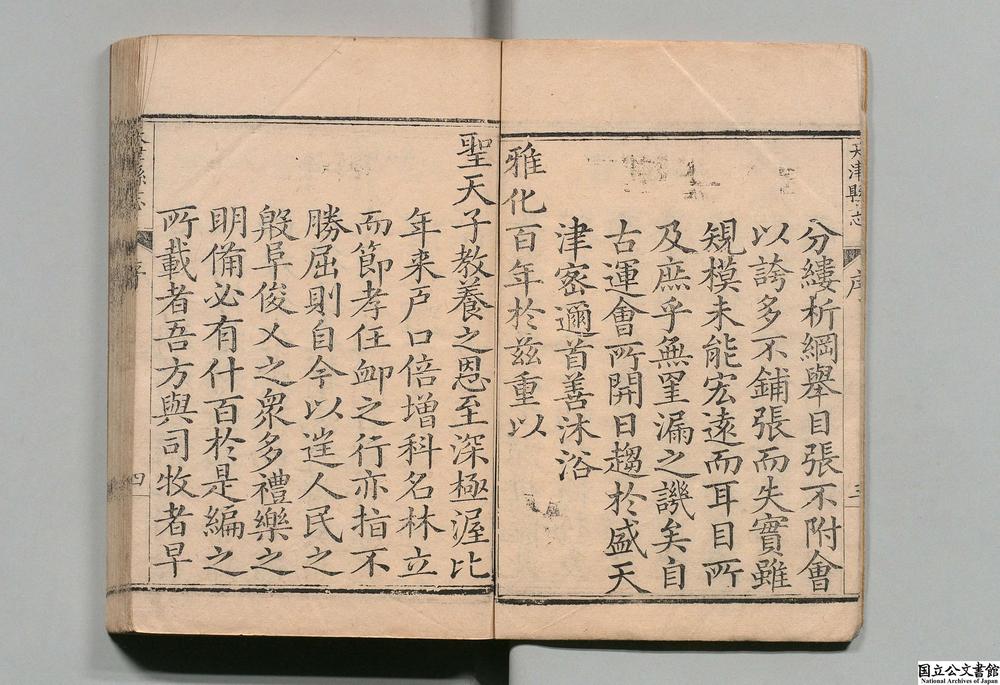 天津縣志
序
三
分縷析綱舉目張不附會
以誇多不鋪張而失實雖
規模未能宏遠而耳目所
及庶乎無罣漏之譏矣自
古運會所開日趨於盛天
津密邇首善沐浴
雅化百年於兹重以
聖天子教養之恩至深極渥比
年来戸口倍增科名林立
而節孝任卹之行亦指不
勝屈則自今以逹人民之
殷阜俊乂之衆多禮樂之
明備必有什百於是編之
所載者吾方與司牧者早
天津縣志
序
四
国立公文書館
National Archives of Japan